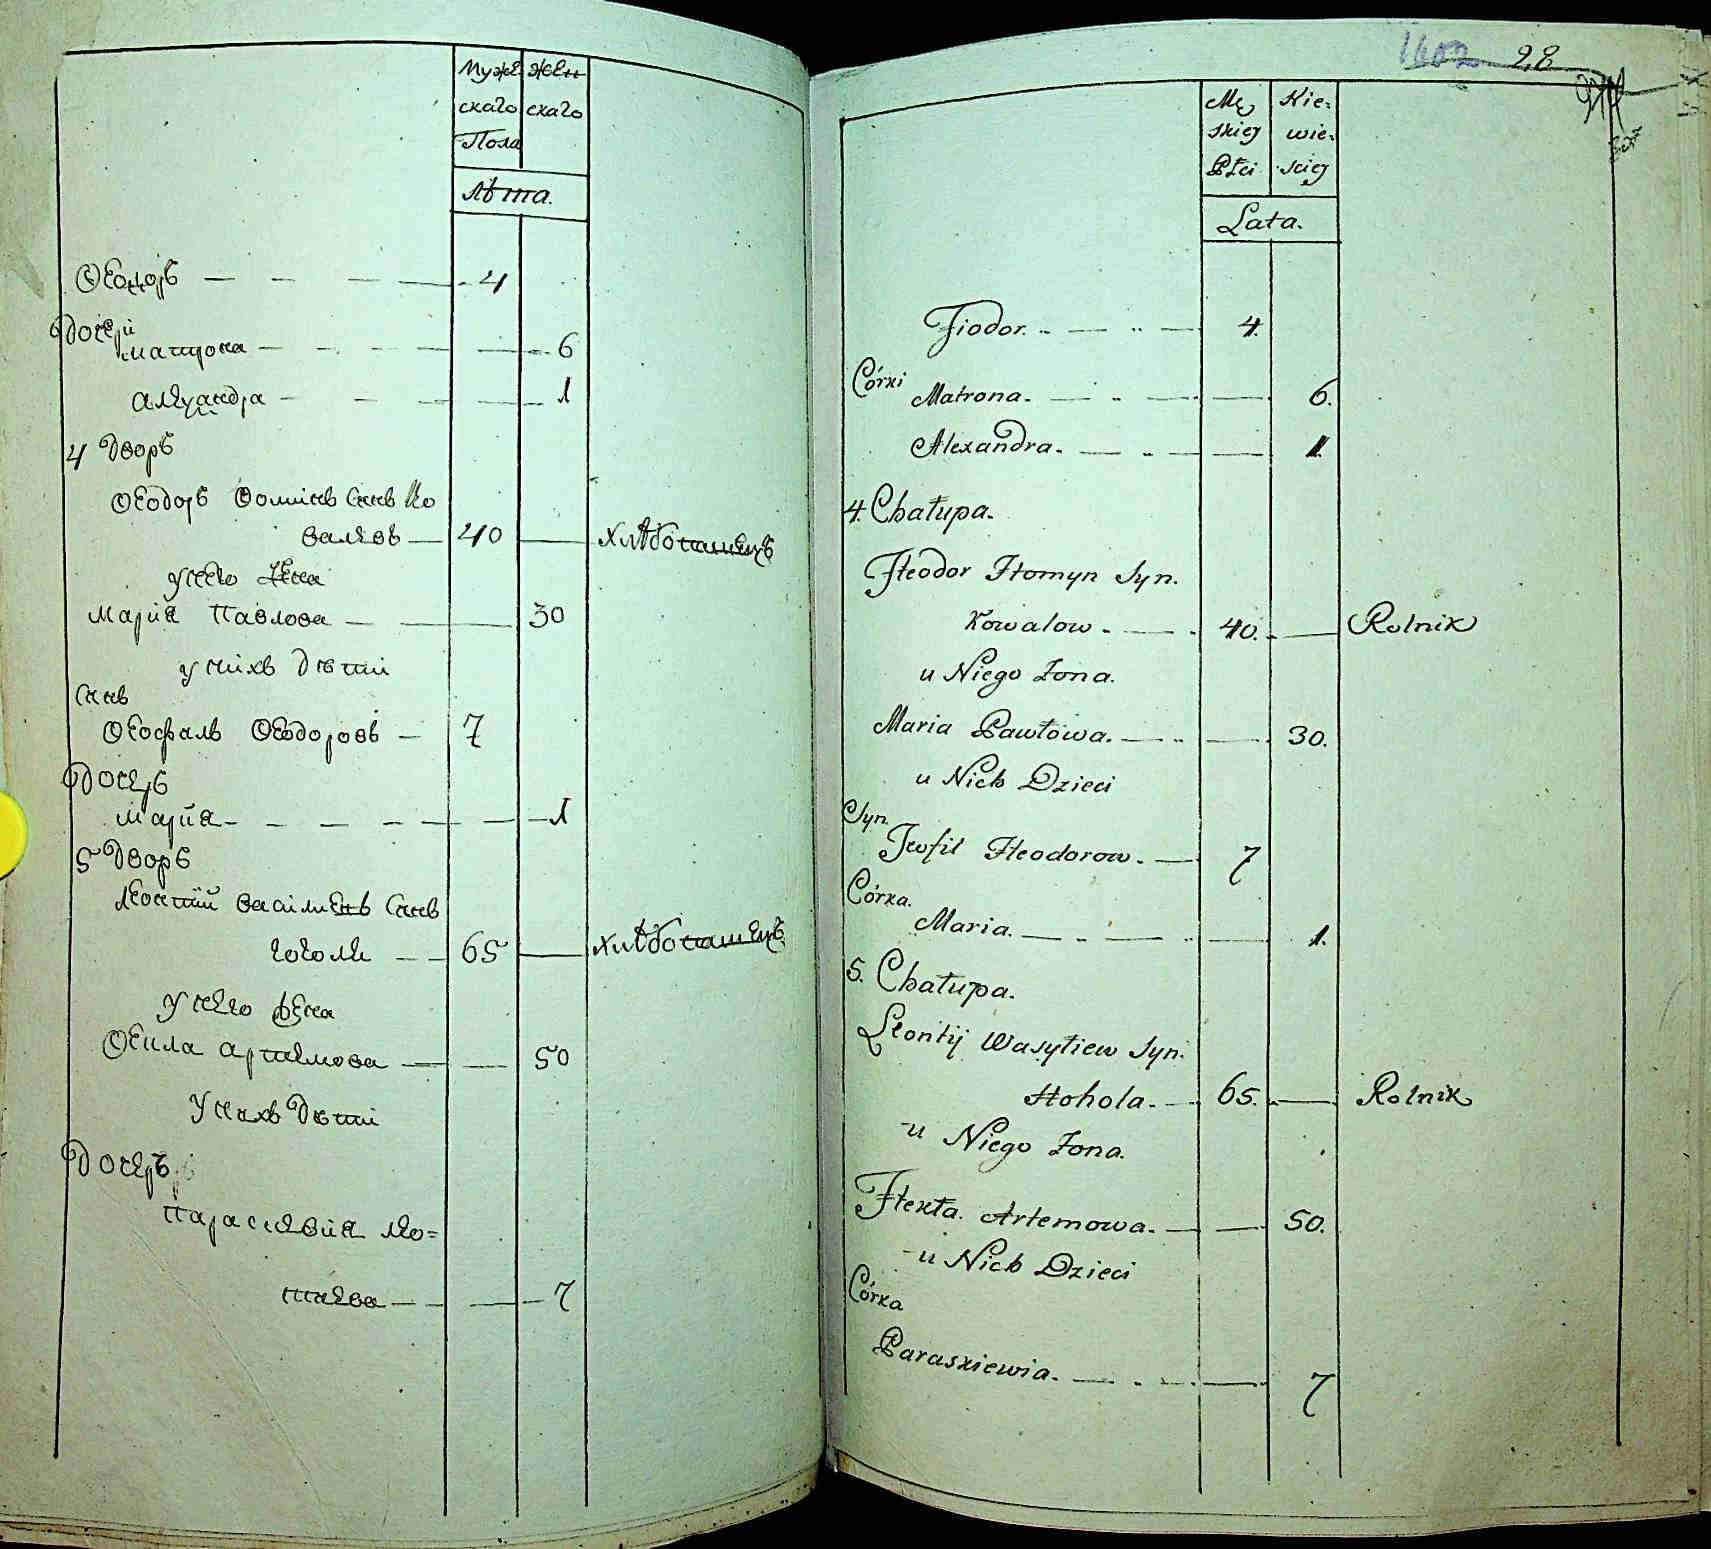 Муже
скаго
Пола
Жен
скаго
лѣта.
Ѳеодоръ 4
Дочери
матрона 6
александра 1
4 Дворъ
Ѳеодоръ Ѳоминъ Сынъ Ко
валевъ 40 хлѣбопашецъ
у него жена
мариа Павлова 30
у нихъ дѣти
Сынъ
Ѳеофилъ Ѳеодоровъ 7
Дочерь
мариа 1
5 Дворъ
Леонтий василиевъ Сынъ
гоголь 65 хлѣбопашецъ
у него жена
Ѳекла артемова 50
у нихъ дѣти
Дочерь
параскевиа лео=
тиева 7
1602 28
Mę
skiey
Płci
Kie=
wie=
sciey
Lata.
Fiodor. 4.
Córki
Matrona. 6.
Alexandra. 1.
4. Chałupa.
Fteodor Ftomyn Syn.
Kowalow. 40. Rolnik
u Niego Żona.
Maria Pawłowa. 30.
u Nich Dzieci
Syn.
Teofil Fteodorow. 7
Córka.
Maria. 1.
5. Chałupa.
Leontij Wasyliew Syn.
Hohola. 65. Rolnik
u Niego Żona.
Ftekła Artemowa. 50.
u Nich Dzieci
Córka
Paraskiewia. 7